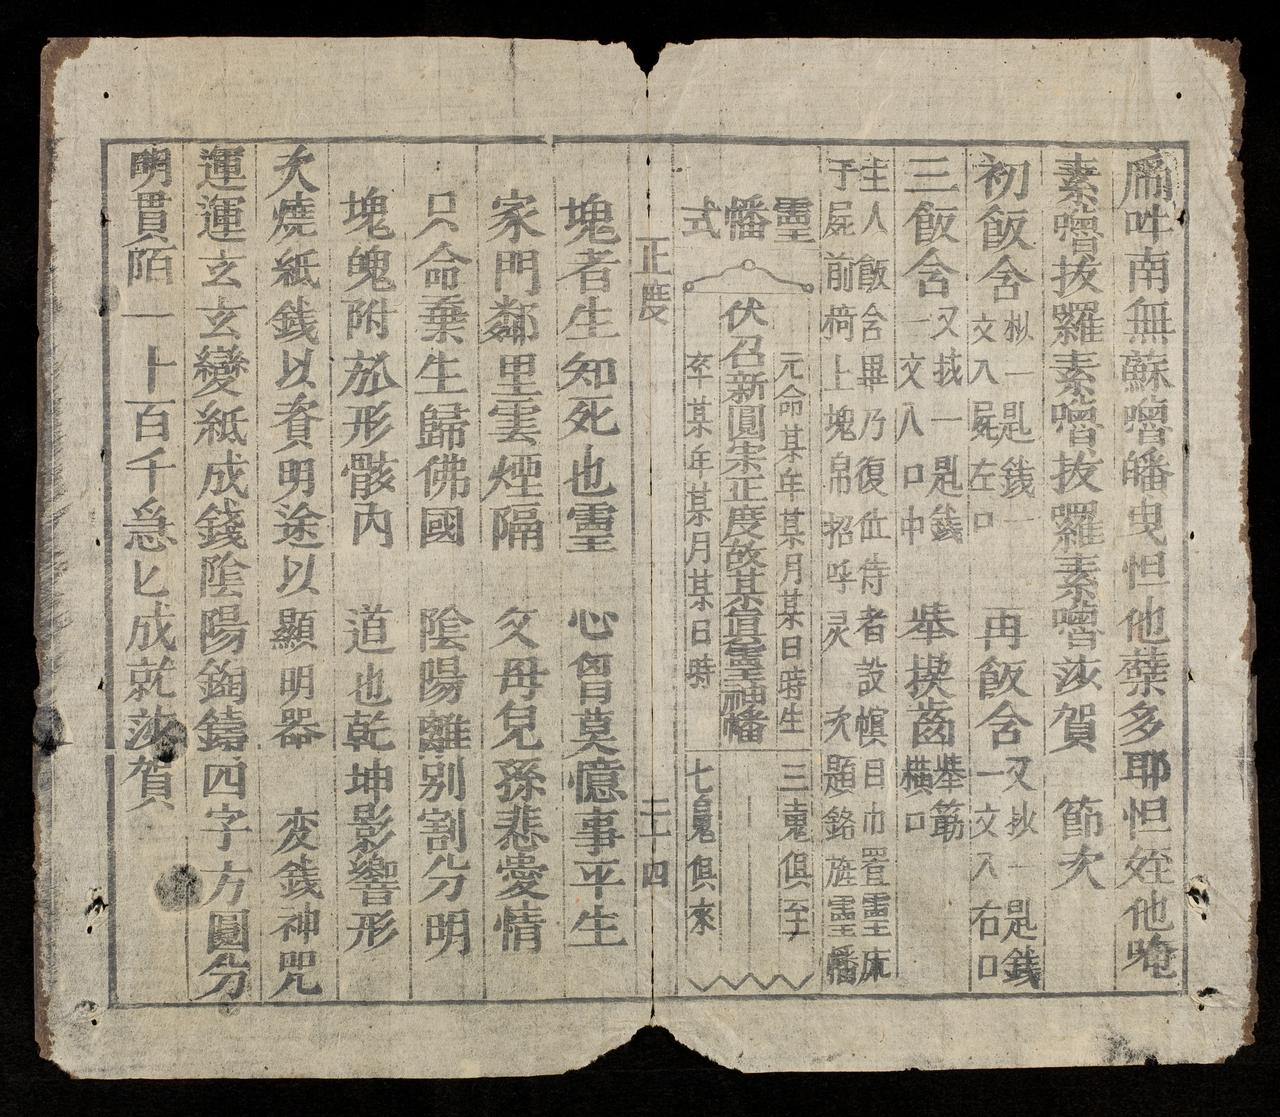 吽南無蘇嚕皤曳怛他蘖多耶怛姪他唵
素嚕拔羅素嚕拔羅素嚕莎賀　節次
初飯含
杓一匙錢一
文入屍左口
再飯含
又抄一匙錢
一文入右口
三飯含
又抄一匙錢
一文入口中
舉揳齒
舉筯
橫口
主人飯含畢乃復位侍者設幎目巾置靈床
于屍前椅上塊帛招呼灵　次題銘旌靈幡
靈幡式
元命某年某月某日時生　三䰟俱至
伏召新圓宗正度故某道靈神幡
卒某年某月某日時　七䰟俱來
正度　二十四
塊者生知死也靈　心曾莫憶事平生
家門鄰里雲煙隔　父母兒孫悲愛情
只命棄生歸佛國　陰陽離別割分明
塊魄附於形骸內　道也乾坤影響形
次燒紙銭以賚明途以顯明器　变銭神咒
運運玄玄變紙成錢陰陽鑄四字方圓分
明貫陌一十百千急匕成就莎賀